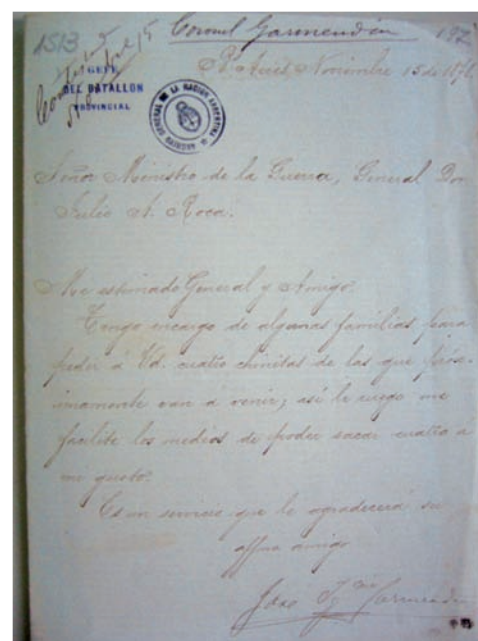 1513
Coronel Garmendia 197
Contestado
Nobre 15
GEFE
DEL BATALLON
PROVINCIAL
Bs Aires Noviembre 15 de 187
ARCHIVO GENERAL DE LA NACION ARGENTINA
Señor Ministro de la Guerra, General Don
Julio A. Roca.
Mi estimado General y Amigo:
Tengo encargo de algunas familias para
pedir á Vd. cuatro chinitas de las que prosi-
mamente van á venir; asi le ruego me
facilite los medios de poder sacar cuatro á
mi gusto.
Es un servicio que le agradecerá su
affmo amigo
José Ig Garmendia